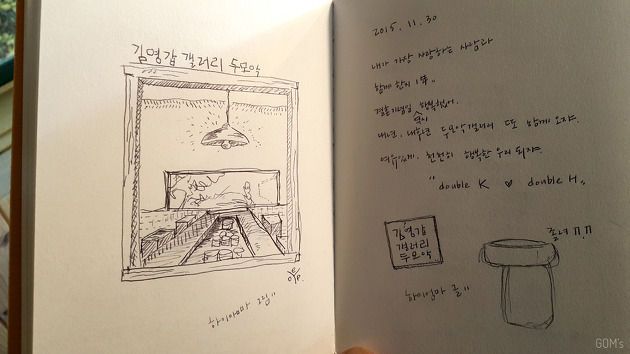 김영갑 갤러리 두모악
하이아빠 그림"
2015. 11. 30
내가 가장 사랑하는 사람과
함께 한지 1年"
결혼기념일, 행복했어.
내년, 내후년 두모악갤러리 또 함께 오자.
여유있게, 천천히 행복한 우리 되자.
"double K ♥ double H"
김영갑
갤러리
두모악
졸녀 ㅠ.ㅠ
하이엄마 글"
GOM's